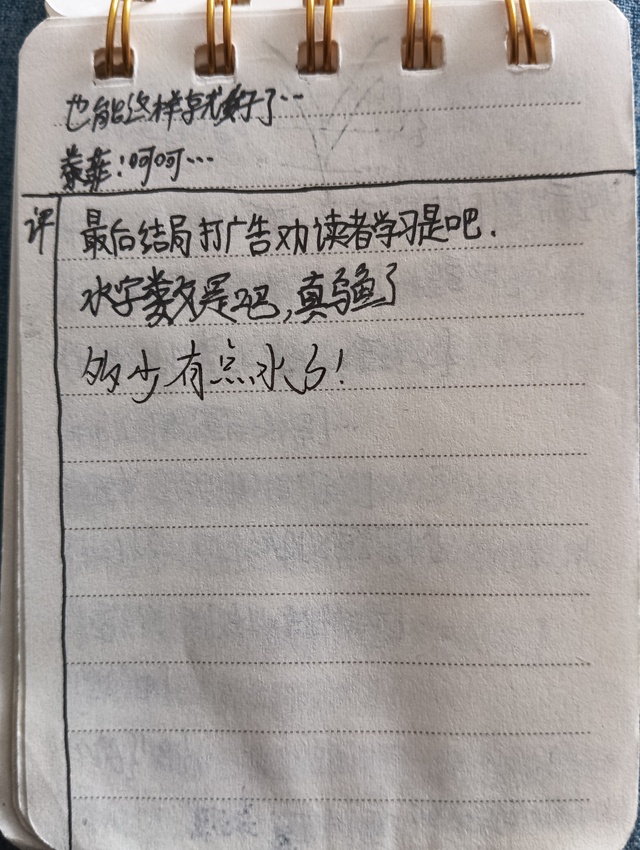 也能这样就好了…
蔡菲!呵呵…
评
最后结局打广告劝读者学习是吧.
水字数是吧,真鱼了
多少有点水了!